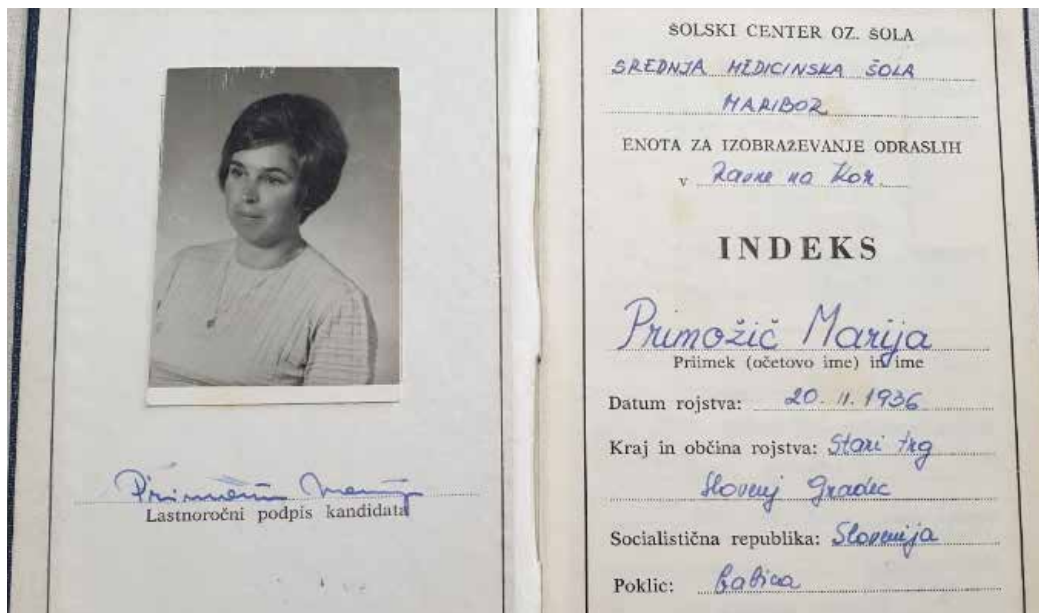 Primožič Marija
Lastnoročni podpis kandidata
ŠOLSKI CENTER OZ. ŠOLA
SREDNJA MEDICINSKA ŠOLA
MARIBOR
ENOTA ZA IZOBRAŽEVANJE ODRASLIH
v Ravne na Kor.
INDEKS
Primožič Marija
Priimek (očetovo ime) in ime
Datum rojstva: 20. 11. 1936
Kraj in občina rojstva: Stari trg
Slovenj Gradec
Socialistična republika: Slovenija
Poklic: babica